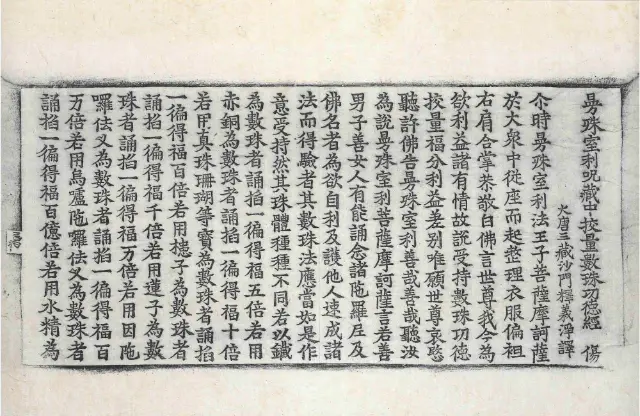 曼殊室利呪藏中挍量數珠功德經 傷
大唐三藏沙門釋義淨譯
尒時曼殊室利法王子菩薩摩訶薩
於大衆中從座而起整理衣服偏袒
右肩合掌恭敬白佛言世尊我今為
欲利益諸有情故說受持數珠功德
挍量福分利益差別唯願世尊哀愍
聽許佛告曼殊室利善哉善哉聽汝
為說曼殊室利菩薩摩訶薩言若善
男子善女人有能誦念諸陁羅尼及
佛名者為欲自利及護他人速成諸
法而得驗者其數珠法應當如是作
意受持然其珠體種種不同若以鐵
為數珠者誦掐一徧得福五倍若用
赤銅為數珠者誦掐一徧得福十倍
若用真珠珊瑚等寶為數珠者誦掐
一徧得福百倍若用槵子為數珠者
誦掐一徧得福千倍若用蓮子為數
珠者誦掐一徧得福万倍若用因陁
囉佉叉為數珠者誦掐一徧得福百
万倍若用烏盧陁囉佉叉為數珠者
誦掐一徧得福百億倍若用水精為